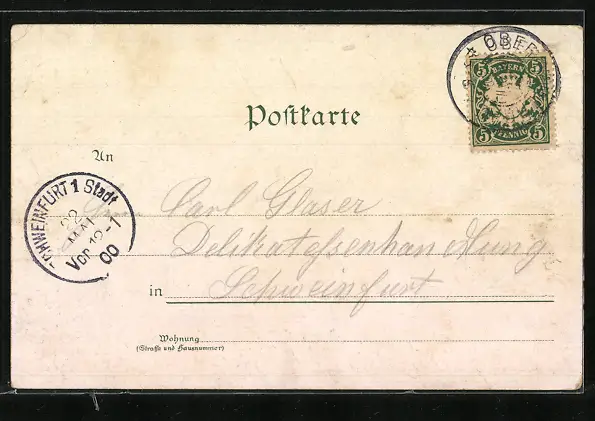 OBER
5 BAYERN 5
5 PFENNIG 5
Postkarte
An
SCHWEINFURT 1 Stadt
22
MAI
Vor 12-1
00
Carl Glaser
Delikatessenhandlung
in Schweinfurt
Wohnung
(Straße und Hausnummer)